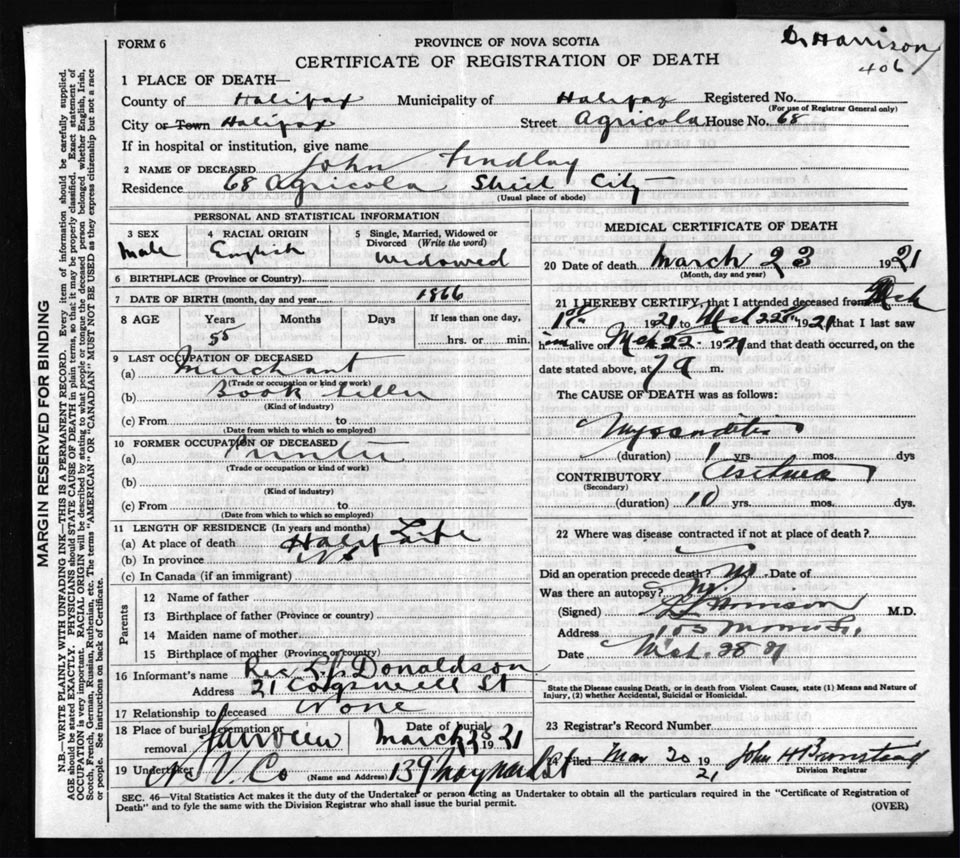 Dr Harrison
406
FORM 6
PROVINCE OF NOVA SCOTIA
CERTIFICATE OF REGISTRATION OF DEATH
1 PLACE OF DEATH—
County of Halifax Municipality of Halifax Registered No.
(For use of Registrar General only)
City or Town Halifax Street Agricola House No. 68
If in hospital or institution, give name
2 NAME OF DECEASED John Findlay
Residence 68 Agricola Street City
(Usual place of abode)
PERSONAL AND STATISTICAL INFORMATION
3 SEX
Male
4 RACIAL ORIGIN
English
5 Single, Married, Widowed or
Divorced (Write the word)
Widowed
6 BIRTHPLACE (Province or Country)
7 DATE OF BIRTH (month, day and year) 1866
8 AGE
Years
55
Months
Days
If less than one day,
hrs. or min.
9 LAST OCCUPATION OF DECEASED
(a) Merchant
(Trade or occupation or kind of work)
(b) Book Seller
(Kind of industry)
(c) From to
(Date from which to which so employed)
10 FORMER OCCUPATION OF DECEASED
(a) Printer
(Trade or occupation or kind of work)
(b)
(Kind of industry)
(c) From to
(Date from which to which so employed)
11 LENGTH OF RESIDENCE (In years and months)
(a) At place of death Halifax Life
(b) In province NS
(c) In Canada (if an immigrant)
Parents
12 Name of father
13 Birthplace of father (Province or country)
14 Maiden name of mother
15 Birthplace of mother (Province or country)
16 Informant's name Rev Donaldson
Address 21 Cogswell St
17 Relationship to deceased None
18 Place of burial, cremation or
removal Fairview
Date of burial
March 25 1921
19 Undertaker N V Co (Name and Address) 139 Maynard St
MEDICAL CERTIFICATE OF DEATH
20 Date of death March 23 1921
(Month, day and year)
21 I HEREBY CERTIFY, that I attended deceased from Mch
1st 1921 to Mch 22nd 1921 that I last saw
him alive on Mch 22 1921 and that death occurred, on the
date stated above, at 7 a m.
The CAUSE OF DEATH was as follows:
Myocarditis
(duration) 1 yrs. mos. dys
CONTRIBUTORY Asthma
(Secondary)
(duration) 10 yrs. mos. dys.
22 Where was disease contracted if not at place of death?
Did an operation precede death? No Date of
Was there an autopsy? No
(Signed) Harrison M.D.
Address 103 Morris St.
Date Mch. 28 21
State the Disease causing Death, or in death from Violent Causes, state (1) Means and Nature of
Injury, (2) whether Accidental, Suicidal or Homicidal.
23 Registrar's Record Number
24 Filed Mar 20 1921 John H
Division Registrar
SEC. 46—Vital Statistics Act makes it the duty of the Undertaker or person acting as Undertaker to obtain all the particulars required in the "Certificate of Registration of
Death" and to fyle the same with the Division Registrar who shall issue the burial permit.
(OVER)
MARGIN RESERVED FOR BINDING
N.B.—WRITE PLAINLY WITH UNFADING INK—THIS IS A PERMANENT RECORD. Every item of information should be carefully supplied.
AGE should be stated EXACTLY. PHYSICIANS should STATE CAUSE OF DEATH in plain terms, so that it may be properly classified. Exact statement of
OCCUPATION is very important. RACIAL ORIGIN will be described by stating to what people or tongue the deceased person belonged whether English, Irish,
Scotch, French, German, Russian, Ruthenian, etc. The terms "AMERICAN" OR "CANADIAN" MUST NOT BE USED as they express citizenship but not a race
or people. See instructions on back of Certificate.